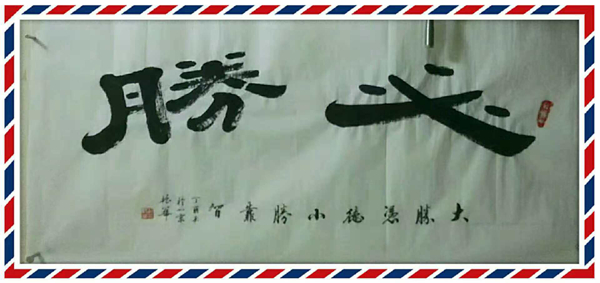 必勝
大勝憑德小勝靠智
丁酉年